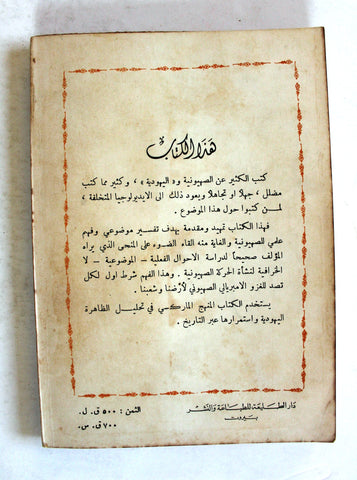 هَذَا الكِتَابُ
كتب الكثير عن الصهيونية و« اليهودية » ، وكثير مما كتب
مضلل ، جهلا او تجاهلا ويعود ذلك الى الايديولوجيا المتخلفة ،
لمن كتبوا حول هذا الموضوع .
فهذا الكتاب تمهيد ومقدمة بهدف تفسير موضوعي وفهم
علمي للصهيونية والغاية منه القاء الضوء على المنحى الذي يراه
المؤلف صحيحاً لدراسة الاحوال الفعلية – الموضوعية – لا
الخرافية لنشأة الحركة الصهيونية . وهذا الفهم شرط اول لكل
تصد للغزو الامبريالي الصهيوني لأرضنا وشعبنا .
يستخدم الكتاب المنهج الماركسي في تحليل الظاهرة
اليهودية واستمرارها عبر التاريخ .
دار الطليعة للطباعة والنشر
بيروت
الثمن : ٥٠٠ ق. ل.
٧٠٠ ق. س.